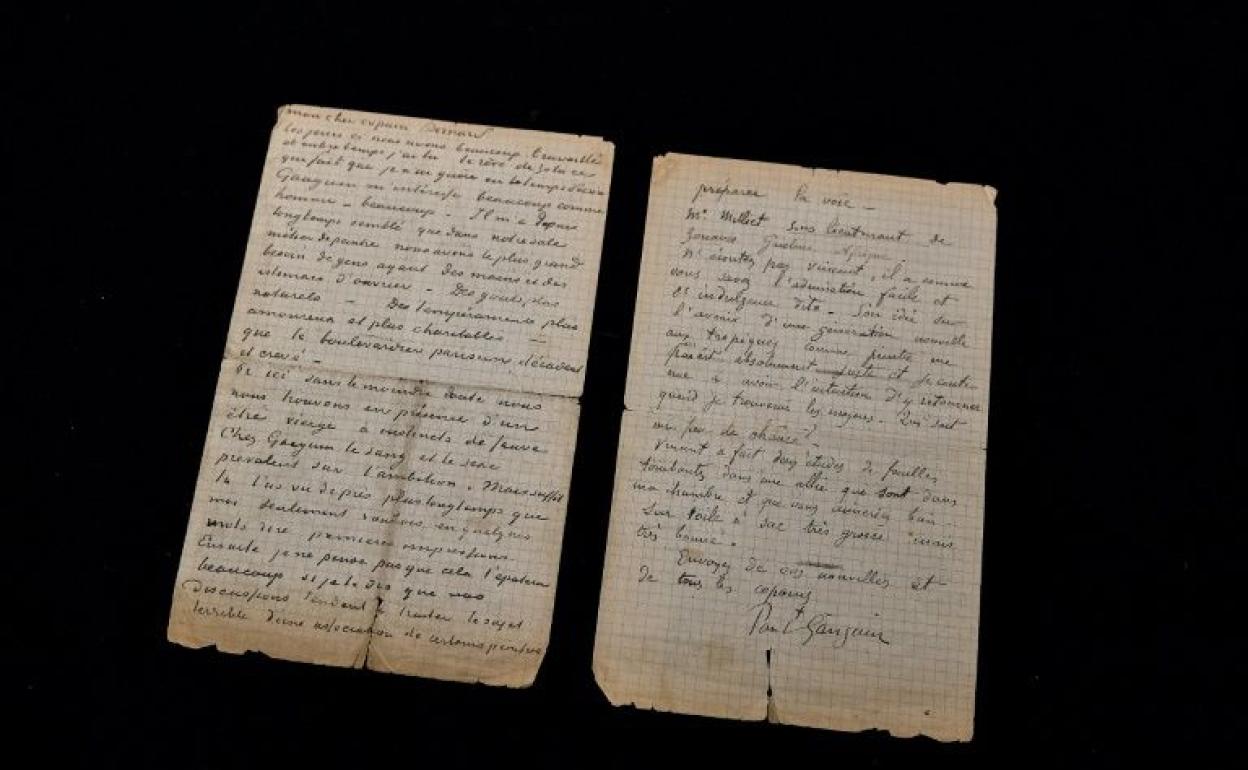 mon cher copain Bernard
Ces jours ci nous avons beaucoup travaillé
et entre temps j'ai lu le rêve de Zola ce
qui fait que je n'ai guère eu le temps d'écrire
Gauguin m'intéresse beaucoup comme
homme – beaucoup – Il m'a depuis
longtemps semblé que dans notre sale
métier de peintre nous avons le plus grand
besoin de gens ayant des mains et des
estomacs d'ouvrier – Des gouts plus
naturels – Des tempéraments plus
amoureux et plus charitables –
que le boulevardier parisien décadent
et crevé –
Or ici sans le moindre doute nous
nous trouvons en présence d'un
être vierge à instincts de sauvage
Chez Gauguin le sang et le sexe
prévalent sur l'ambition. Mais suffit
tu l'as vu de près plus longtemps que
moi seulement voulais en quelques
mots dire premieres impressions.
Ensuite je ne pense pas que cela t'épatera
beaucoup si je te dis que nos
discussions tendent à traiter le sujet
terrible d'une association de certains peintres
préparer la voie –
Mr Milliet sous lieutenant de
Zouaves Guelma Afrique.
N'écoutez pas Vincent, il a comme
vous savez l'admiration facile et
l'indulgence dito – Son idée sur
l'avenir d'une génération nouvelle
aux tropiques comme peintre me
parait absolument juste et je continue
à avoir l'intention d'y retourner
quand je trouverai les moyens. Qui sait
un peu de chance?–
Vincent a fait deux études de feuilles
tombantes dans une allée qui sont dans
ma chambre et que vous aimeriez bien
Sur toile à sac très grosse mais
très bonne.
Envoyez de vos nouvelles et
de tous les copains
Paul Gauguin